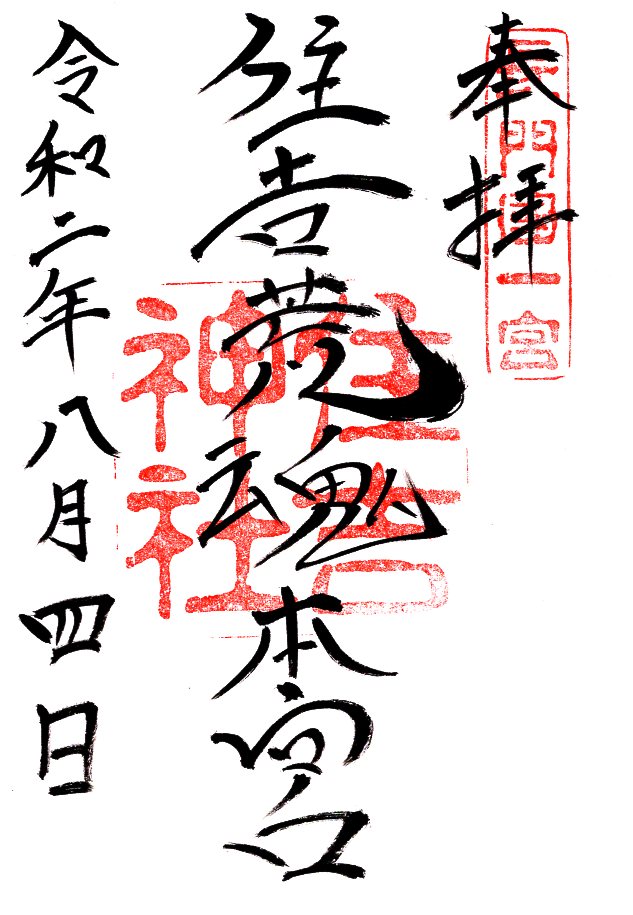 奉拝
長門國一宮
住吉荒魂本宮
住吉神社
令和二年八月四日